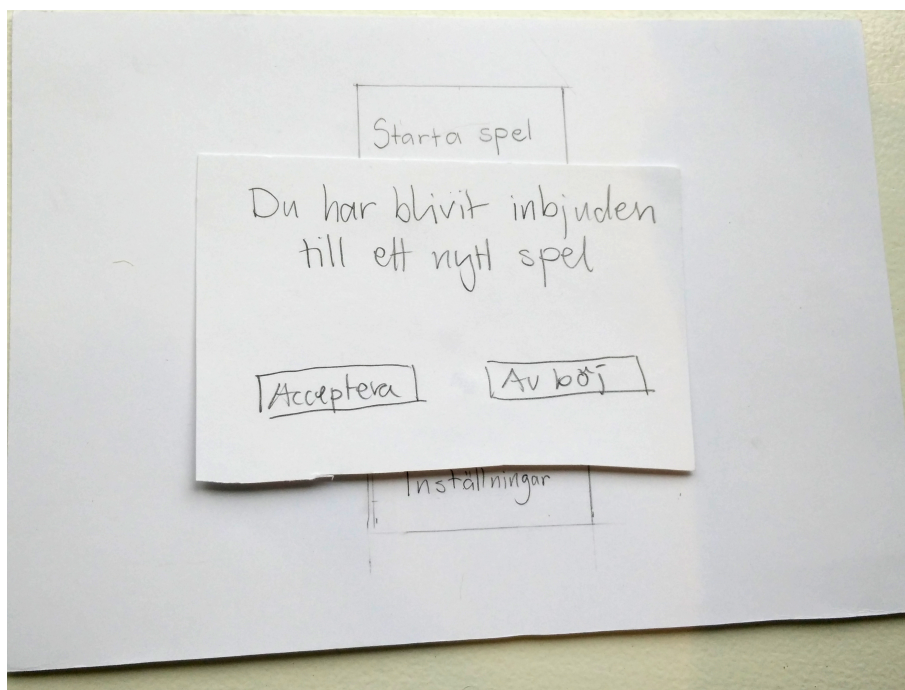 Starta spel
Du har blivit inbjuden
till ett nytt spel
Acceptera
Avböj
Inställningar